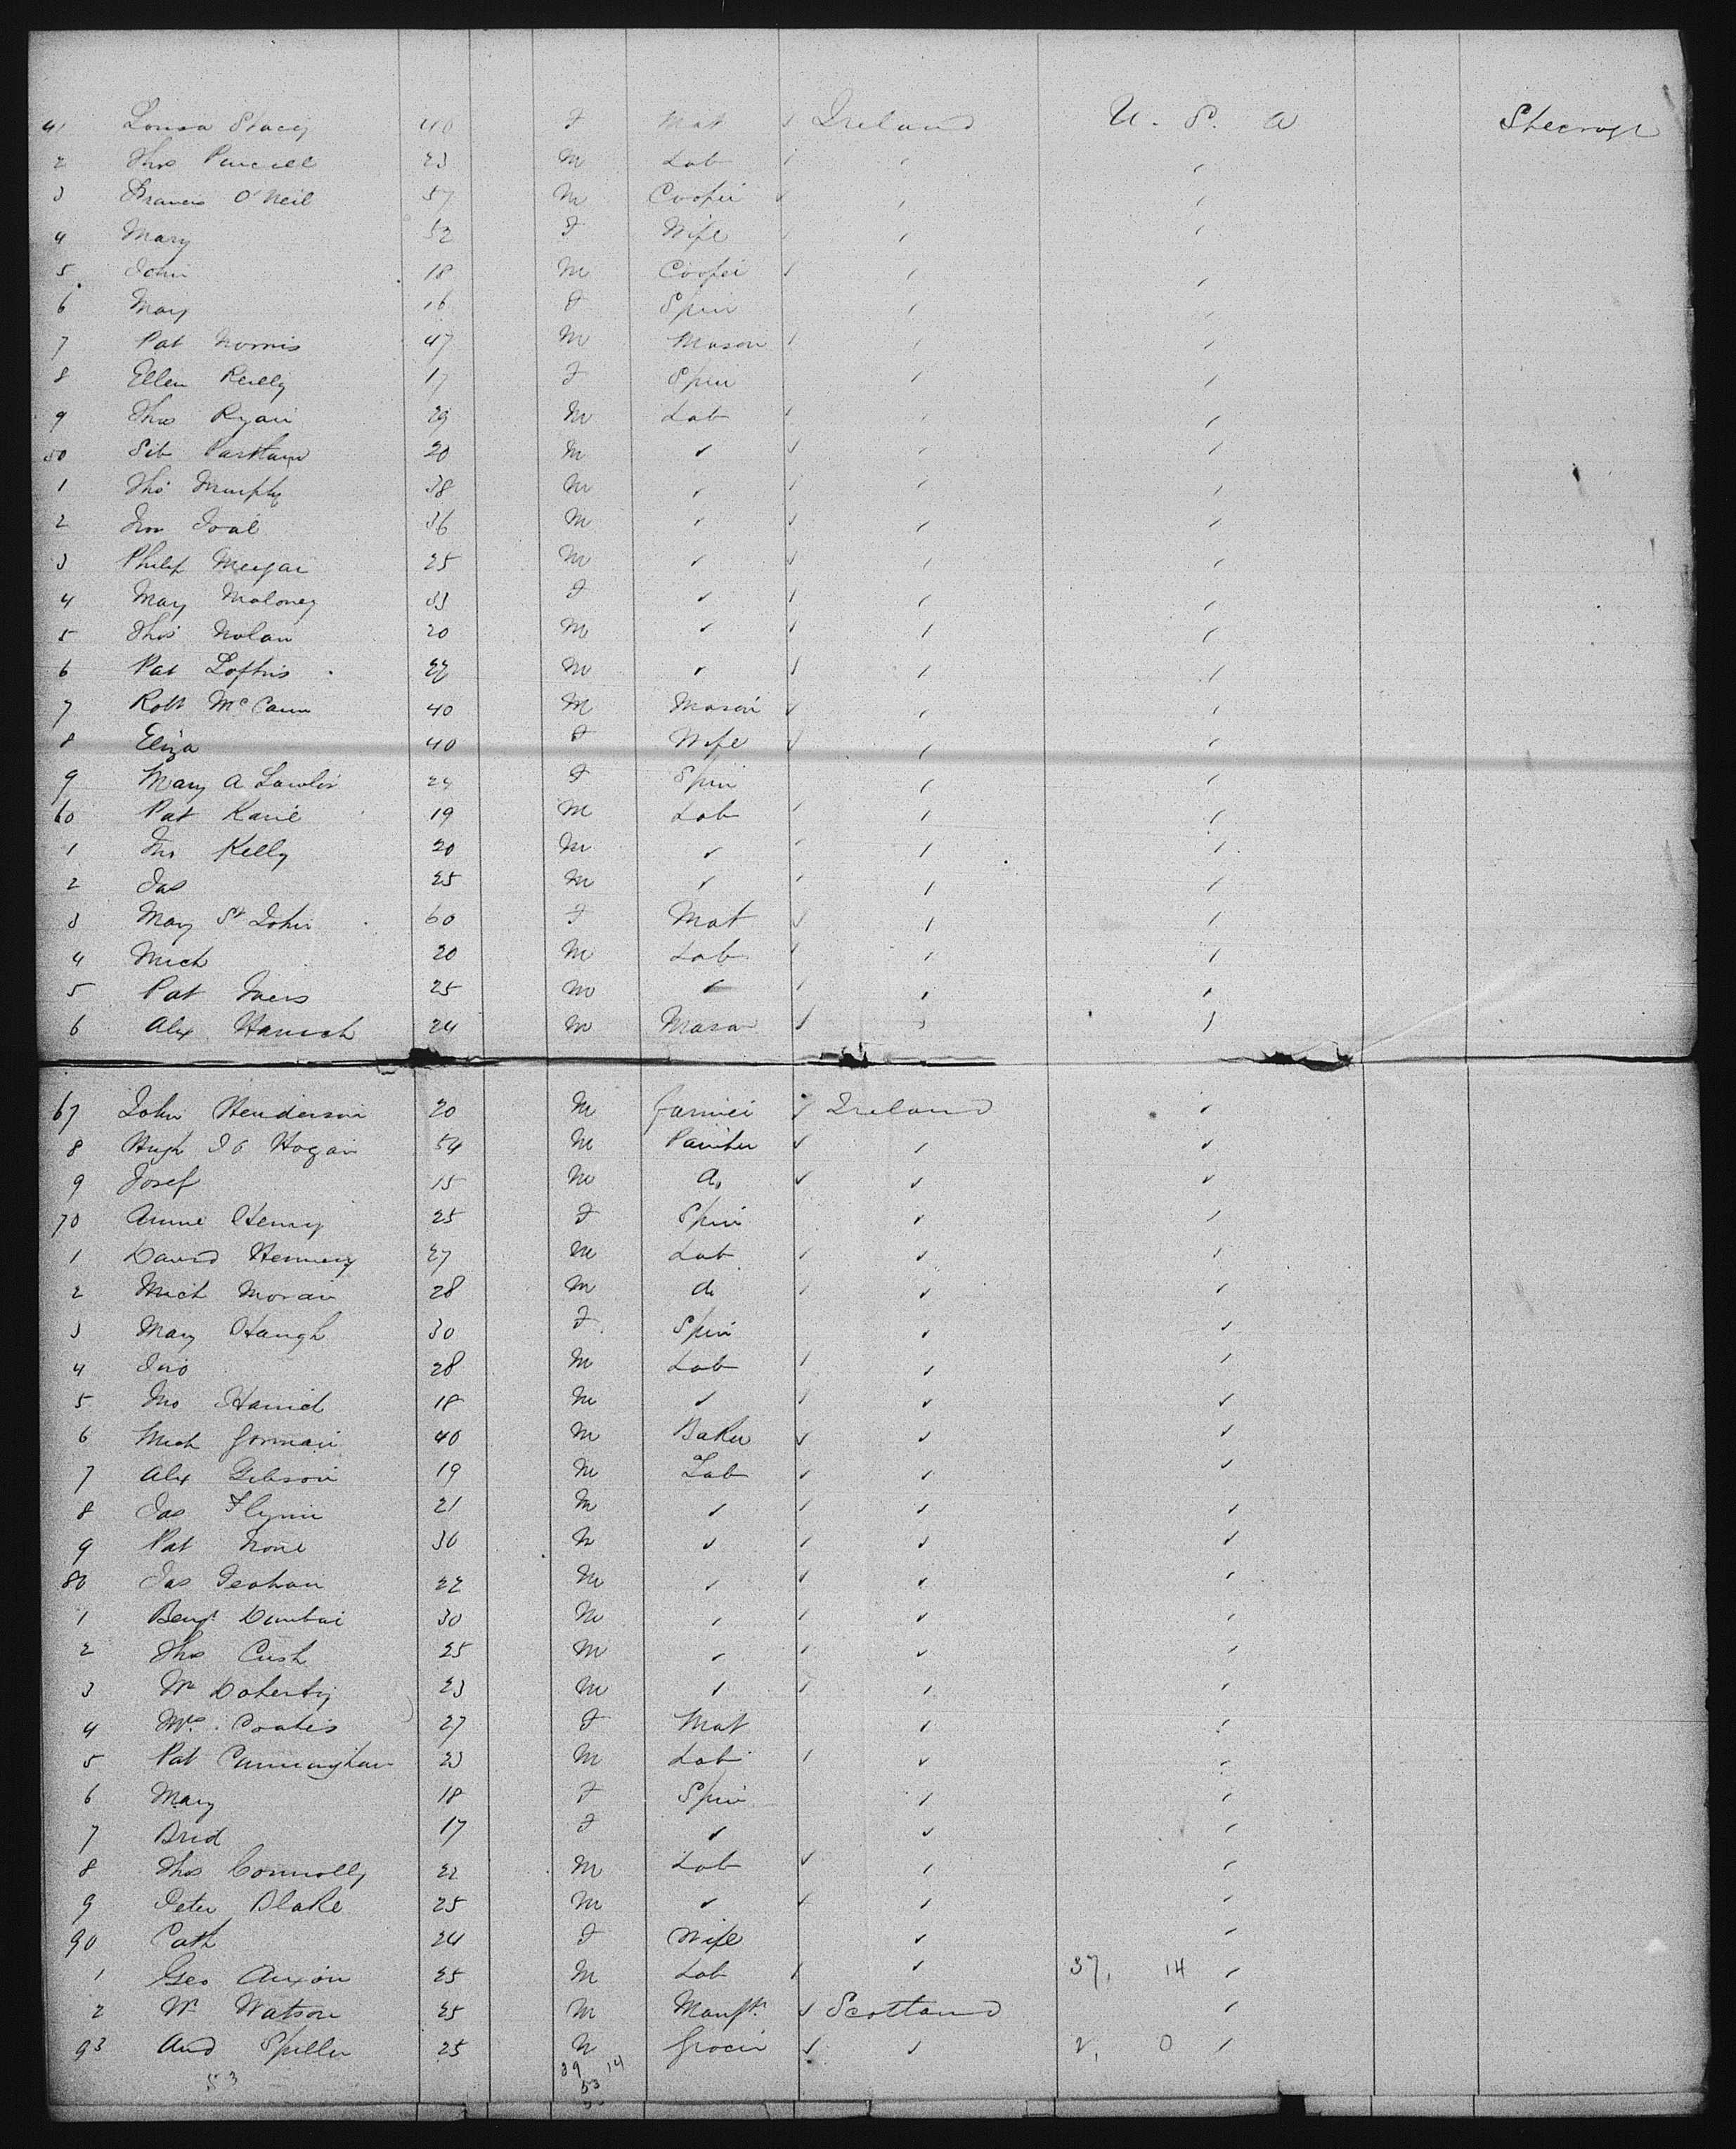 41 Louisa Stacey 40 F Mat ✓ Ireland U. S. A Steerage
2 Thos Purcell 23 M Lab ✓ ✓ ✓
3 Francis O'Neil 57 M Cooper ✓ ✓ ✓
4 Mary 52 F Wife ✓ ✓ ✓
5 John 18 M Cooper ✓ ✓ ✓
6 Mary 16 F Spin ✓ ✓
7 Pat Norris 47 M Mason ✓ ✓ ✓
8 Ellen Reilly 17 F Spin ✓ ✓
9 Thos Ryan 29 M Lab ✓ ✓ ✓
50 20 M ✓ ✓ ✓ ✓
1 Thos Murphy 38 M ✓ ✓ ✓ ✓
2 36 M ✓ ✓ ✓ ✓
3 Philip 25 M ✓ ✓ ✓ ✓
4 Mary Moloney 33 F ✓ ✓ ✓ ✓
5 Thos Nolan 20 M ✓ ✓ ✓ ✓
6 Pat Loftus 22 M ✓ ✓ ✓ ✓
7 Robt McCann 40 M Mason ✓ ✓ ✓
8 Eliza 40 F Wife ✓ ✓ ✓
9 Mary A Lawlor 24 F Spin ✓ ✓
60 Pat Kane 19 M Lab ✓ ✓ ✓
1 Jno Kelly 20 M ✓ ✓ ✓ ✓
2 Jas 25 M ✓ ✓ ✓ ✓
3 Mary St John 60 F Mat ✓ ✓ ✓
4 Mich 20 M Lab ✓ ✓ ✓
5 Pat 25 M ✓ ✓ ✓ ✓
6 Alex 24 M Mason ✓ ✓ ✓
67 John Henderson 20 M Farmer ✓ Ireland ✓
8 Hugh Hogan 54 M Painter ✓ ✓ ✓
9 Josef 15 M Do ✓ ✓ ✓
70 Annie Henry 25 F Spin ✓ ✓
1 David 27 M Lab ✓ ✓ ✓
2 Mich Moran 28 M do ✓ ✓ ✓
3 Mary Haugh 30 F Spin ✓ ✓
4 Jno 28 M Lab ✓ ✓ ✓
5 Jno 18 M ✓ ✓ ✓ ✓
6 Mich Gorman 40 M Baker ✓ ✓ ✓
7 Alex Gibson 19 M Lab ✓ ✓ ✓
8 Jas Flynn 21 M ✓ ✓ ✓ ✓
9 Pat None 30 M ✓ ✓ ✓ ✓
80 Jas 22 M ✓ ✓ ✓ ✓
1 Benj Dunbar 30 M ✓ ✓ ✓ ✓
2 Thos Cush 25 M ✓ ✓ ✓ ✓
3 Wm Doherty 23 M ✓ ✓ ✓ ✓
4 Mrs Coates 27 F Mat ✓ ✓
5 Pat Cunningham 23 M Lab ✓ ✓ ✓
6 Mary 18 F Spin ✓ ✓
7 Brid 17 F ✓ ✓ ✓
8 Thos Connolly 22 M Lab ✓ ✓ ✓
9 Peter Blake 25 M ✓ ✓ ✓ ✓
90 Cath 24 F Wife ✓ ✓
1 Geo 25 M Lab ✓ ✓ 37, 14 ✓
2 Wm Watson 25 M Manftr ✓ Scotland ✓
93 And Spiller 25 M Grocer ✓ ✓ 2, 0 ✓
53 39 14
53